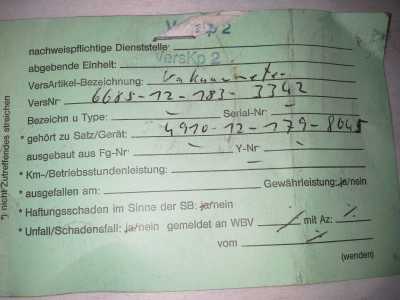 VersKp 2
nachweispflichtige Dienststelle:
abgebende Einheit: VersKp 2
VersArtikel-Bezeichnung: Vakuummeter
VersNr 6685-12-183-3342
Bezeichn u Type: - Serial-Nr: -
* gehört zu Satz/Gerät: 4910-12-179-8645
ausgebaut aus Fg-Nr: - Y-Nr: -
* Km-/Betriebsstundenleistung: -
* ausgefallen am: Gewährleistung: ja/nein
* Haftungsschaden im Sinne der SB: ja/nein
* Unfall/Schadensfall: ja/nein gemeldet an WBV ⁒ mit Az: ⁒
vom ⁒
(wenden)
*) nicht Zutreffendes streichen